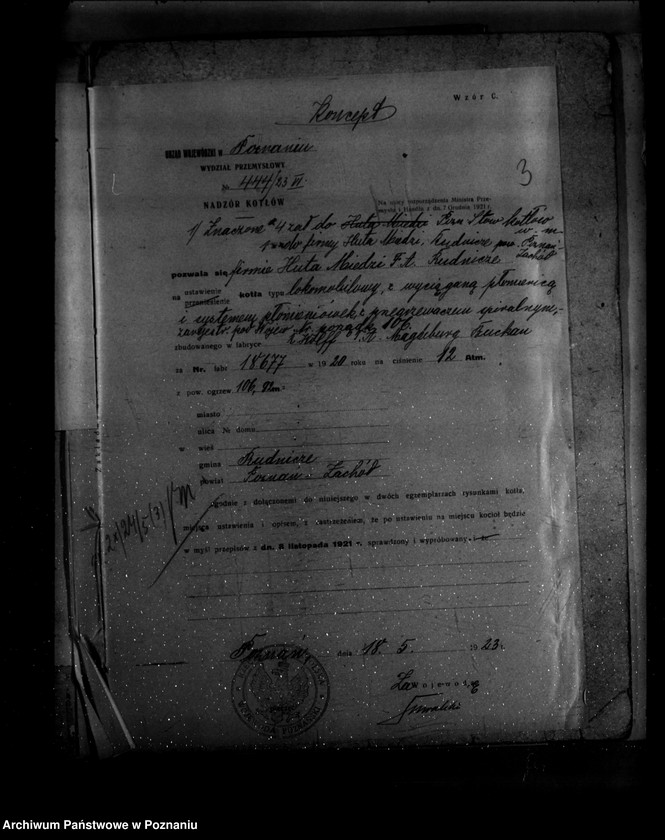 Wzór C.
Koncept
URZĄD WOJEWÓDZKI w Poznaniu
WYDZIAŁ PRZEMYSŁOWY
3
№ 444/23 VI
NADZÓR KOTŁÓW
Na mocy rozporządzenia Ministra Prze-
mysłu i Handlu z dn. 7 Grudnia 1921 r.
1/ Znaczone 4 zał do Huta Miedzi Pzn Stow kotłów
w m.
firmy Huta Miedzi, Rudnicze pow. Poznań
Zachód
pozwala się firmie Huta Miedzi T. A. Rudnicze
na ustawienie
przeniesienie kotła typu lokomobilowy, z wyciąganą płomienicą
i systemem płomieniówek z przegrzewaczem spiralnym,
zarejestr. pod Wojew. Nr.
zbudowanego w fabryce R. Wolff Magdeburg Buckau
za Nr. fabr 18677 w 1920 roku na ciśnienie 12 Atm.
z pow. ogrzew 106, m²
miasto
ulica № domu
w wieś
gmina Rudnicze
powiat Poznań-Zachód
zgodnie z dołączonemi do niniejszego w dwóch egzemplarzach rysunkami kotła,
miejsca ustawienia i opisem, z zastrzeżeniem, że po ustawieniu na miejscu kocioł będzie
w myśl przepisów z dn. 8 listopada 1921 r. sprawdzony i wypróbowany
Poznań, dnia 18. 5. 1923 r.
Za Wojewodę
Archiwum Państwowe w Poznaniu